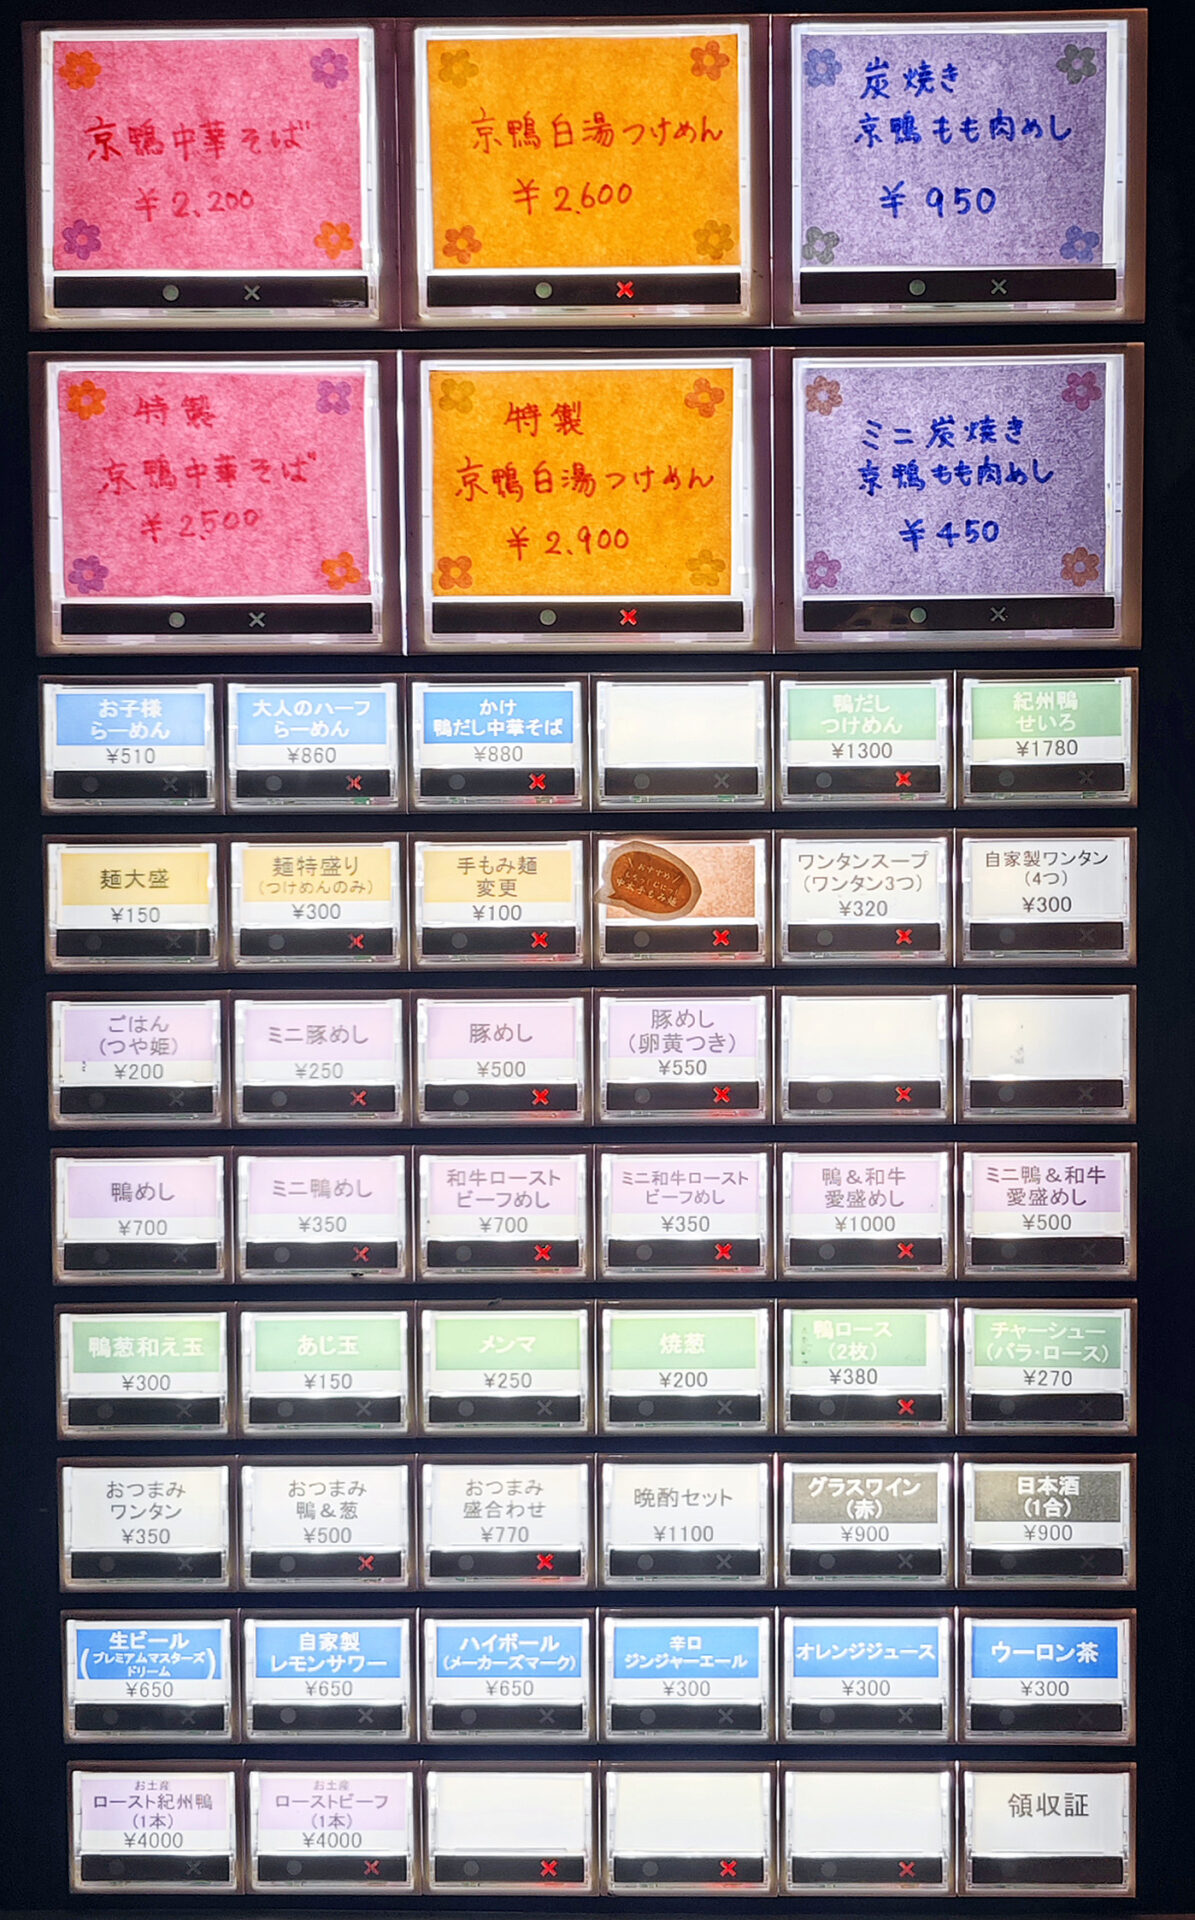 京鴨中華そば
¥2,200
京鴨白湯つけめん
¥2,600
炭焼き
京鴨もも肉めし
¥950
特製
京鴨中華そば
¥2500
特製
京鴨白湯つけめん
¥2,900
ミニ炭焼き
京鴨もも肉めし
¥450
お子様
らーめん
¥510
大人のハーフ
らーめん
¥860
かけ
鴨だし中華そば
¥880
鴨だし
つけめん
¥1300
紀州鴨
せいろ
¥1780
麺大盛
¥150
麺特盛り
(つけめんのみ)
¥300
手もみ麺
変更
¥100
おすすめ
ワンタンスープ
(ワンタン3つ)
¥320
自家製ワンタン
(4つ)
¥300
ごはん
(つや姫)
¥200
ミニ豚めし
¥250
豚めし
¥500
豚めし
(卵黄つき)
¥550
鴨めし
¥700
ミニ鴨めし
¥350
和牛ロースト
ビーフめし
¥700
ミニ和牛ロースト
ビーフめし
¥350
鴨&和牛
愛盛めし
¥1000
ミニ鴨&和牛
愛盛めし
¥500
鴨葱和え玉
¥300
あじ玉
¥150
メンマ
¥250
焼葱
¥200
鴨ロース
(2枚)
¥380
チャーシュー
(バラ・ロース)
¥270
おつまみ
ワンタン
¥350
おつまみ
鴨&葱
¥500
おつまみ
盛合わせ
¥770
晩酌セット
¥1100
グラスワイン
(赤)
¥900
日本酒
(1合)
¥900
生ビール
(プレミアムマスターズ
ドリーム)
¥650
自家製
レモンサワー
¥650
ハイボール
(メーカーズマーク)
¥650
辛口
ジンジャーエール
¥300
オレンジジュース
¥300
ウーロン茶
¥300
お土産
ロースト紀州鴨
(1本)
¥4000
お土産
ローストビーフ
(1本)
¥4000
領収証